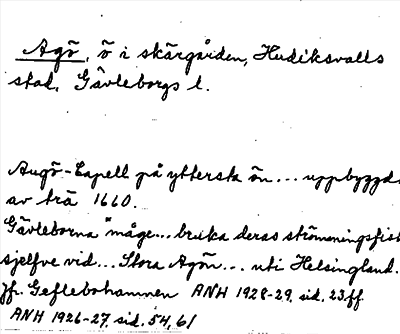 Agö, ö i skärgården, Hudiksvalls
stad, Gävleborgs l.
Augö-Capell på yttersta ön... uppbyggd
av trä 1660.
Gävleborna "måge... bruka deras strömeningsfisk
sjelfve vid... Stora Agön... uti Helsingland.
Jfr. Geflebohamnen ANH 1928-29, sid. 23 ff
ANH 1926-27, sid. 54, 61